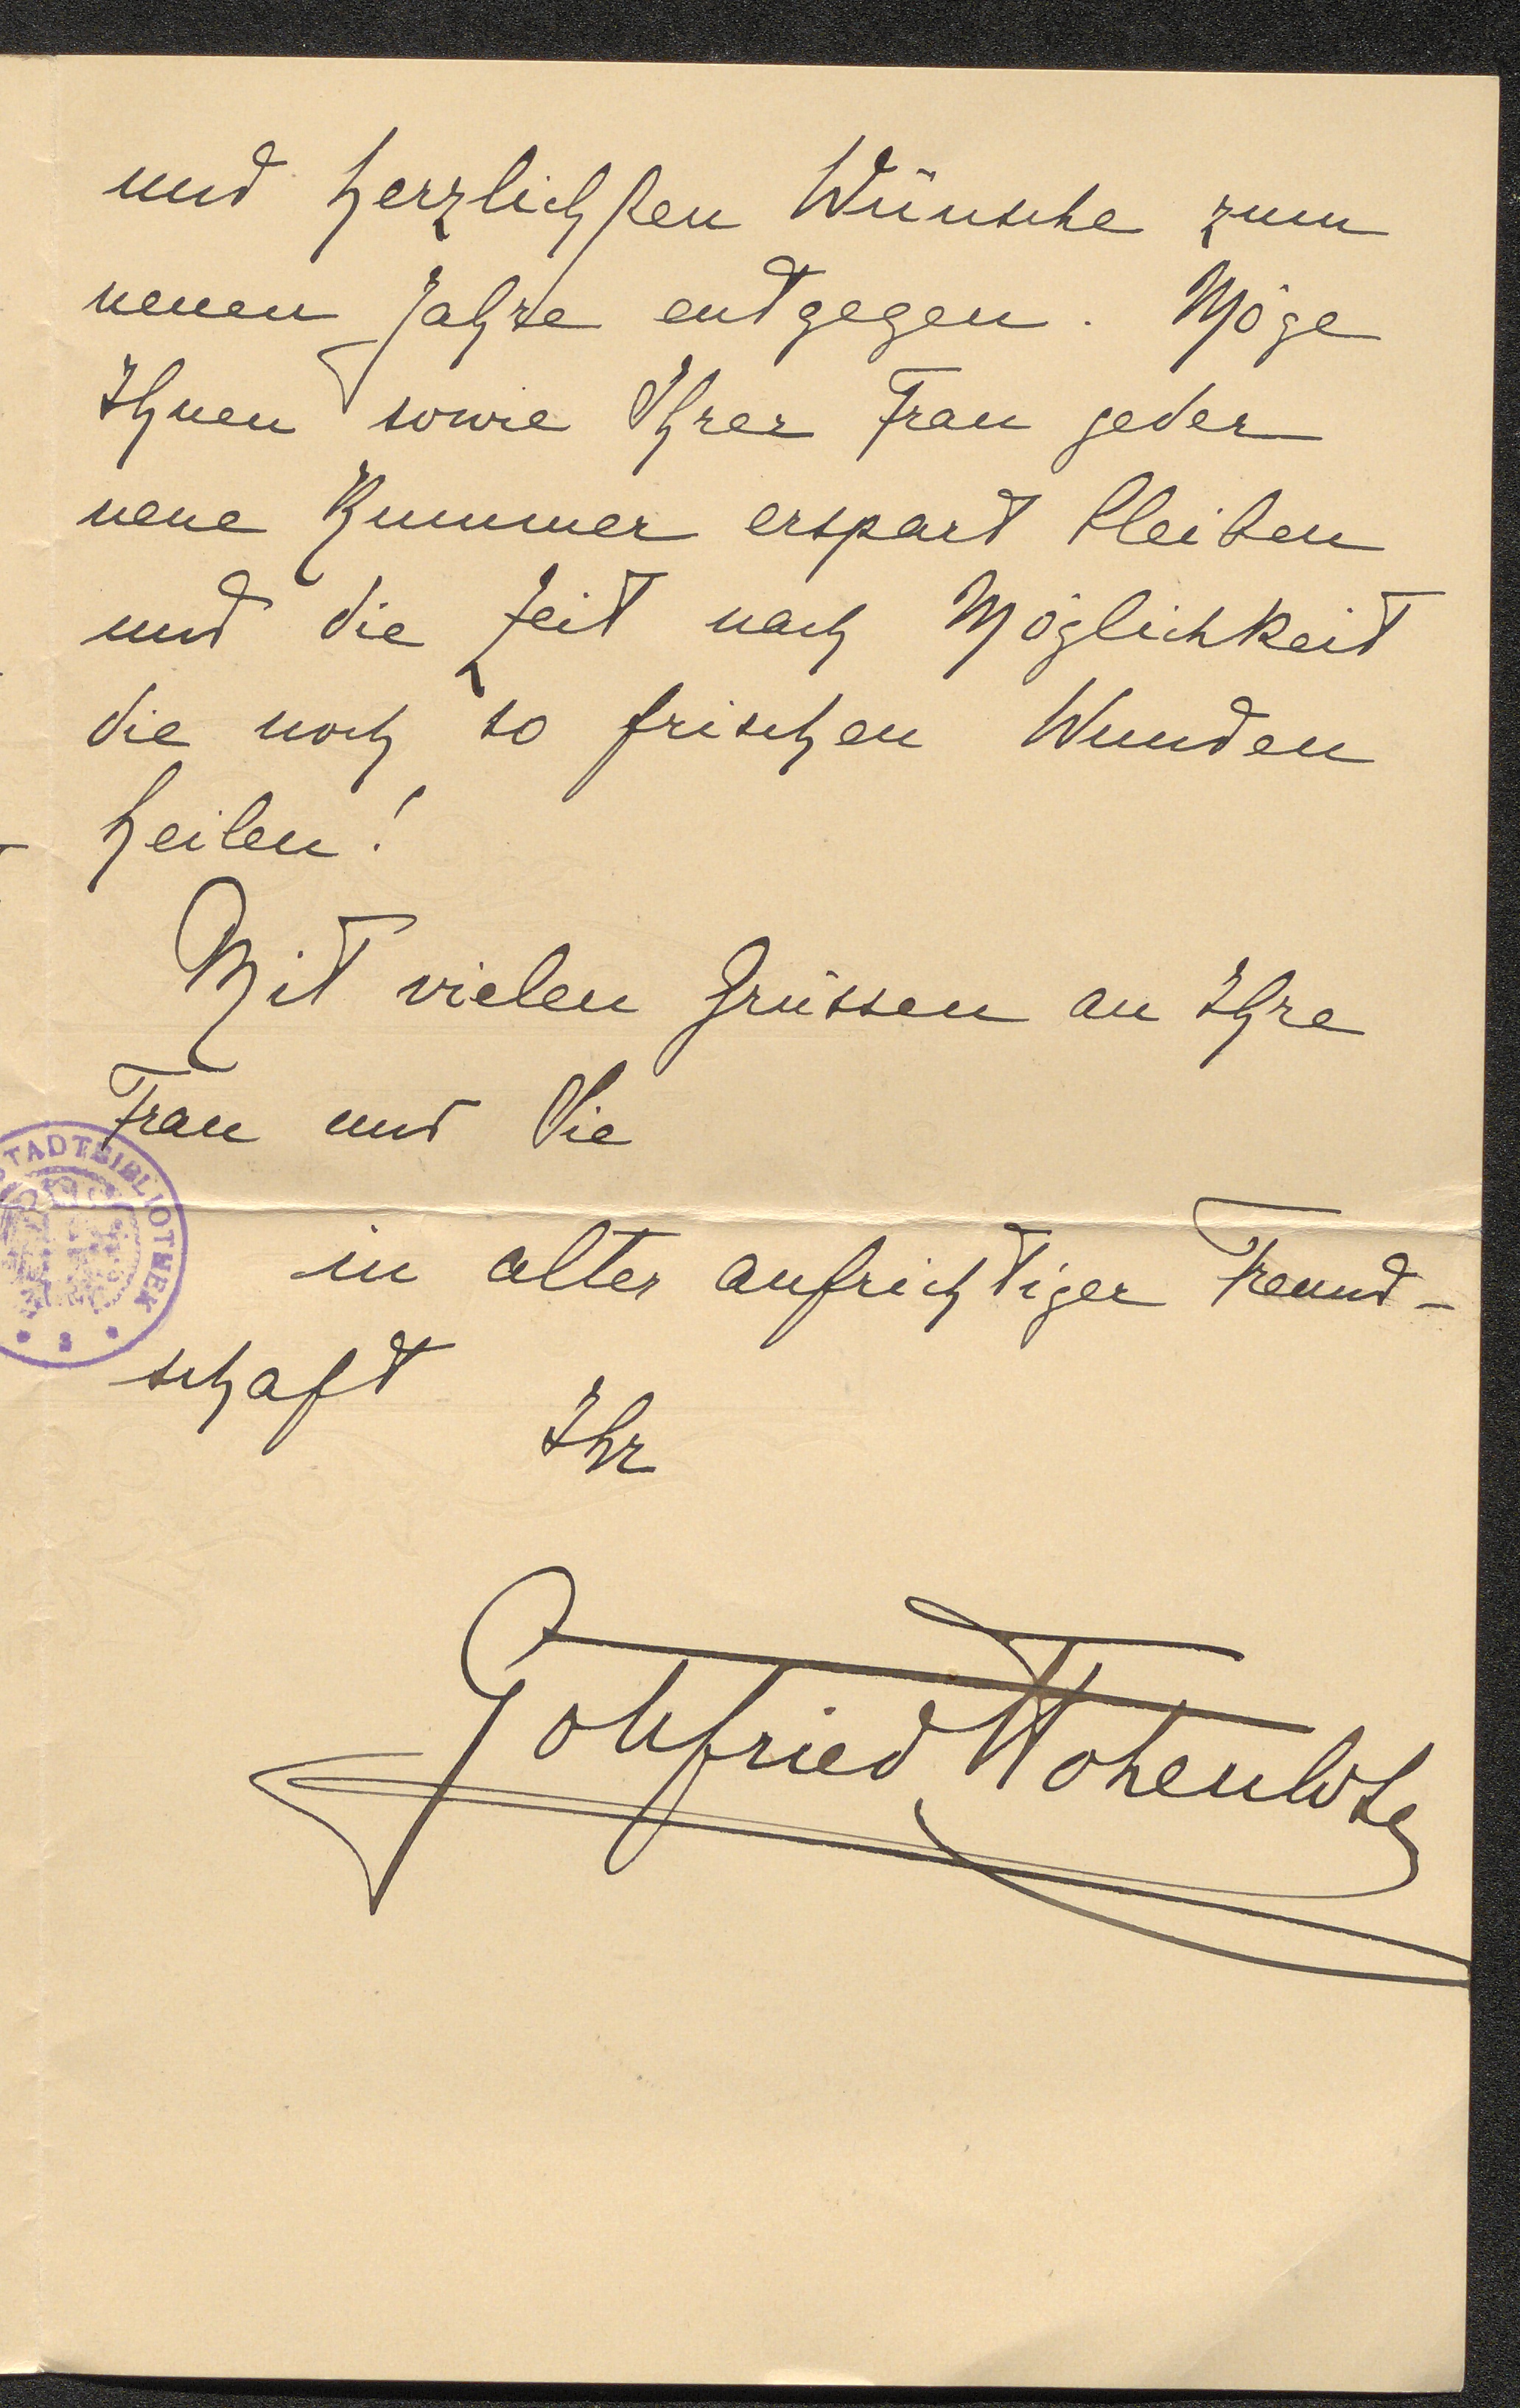 und herzlichsten Wünsche zum
neuen Jahre entgegen. Möge
Ihnen sowie Ihrer Frau jeder
neue Kummer erspart bleiben
und die Zeit nach Möglichkeit
die noch so frischen Wunden
heilen!
Mit vielen Grüssen an Ihre
Frau und Sie
STADTBIBLIOTHEK
in alter aufrichtiger Freund-
schaft
Ihr
Gottfried Hohenlohe